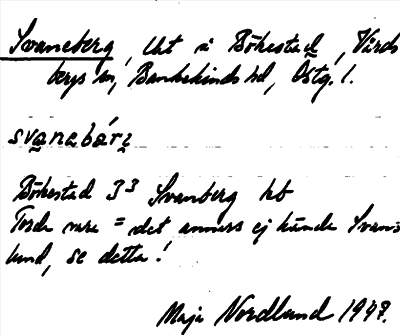 Svaneberg, Utt i Bökestad, Vårds
bergs sn, Bankekinds hd, Östg. l.
svanabárị
Bökestad 3³ Svanberg kb
Torde vara = det annars ej kända Svans
lund, se detta!
Maja Nordlund 1947.